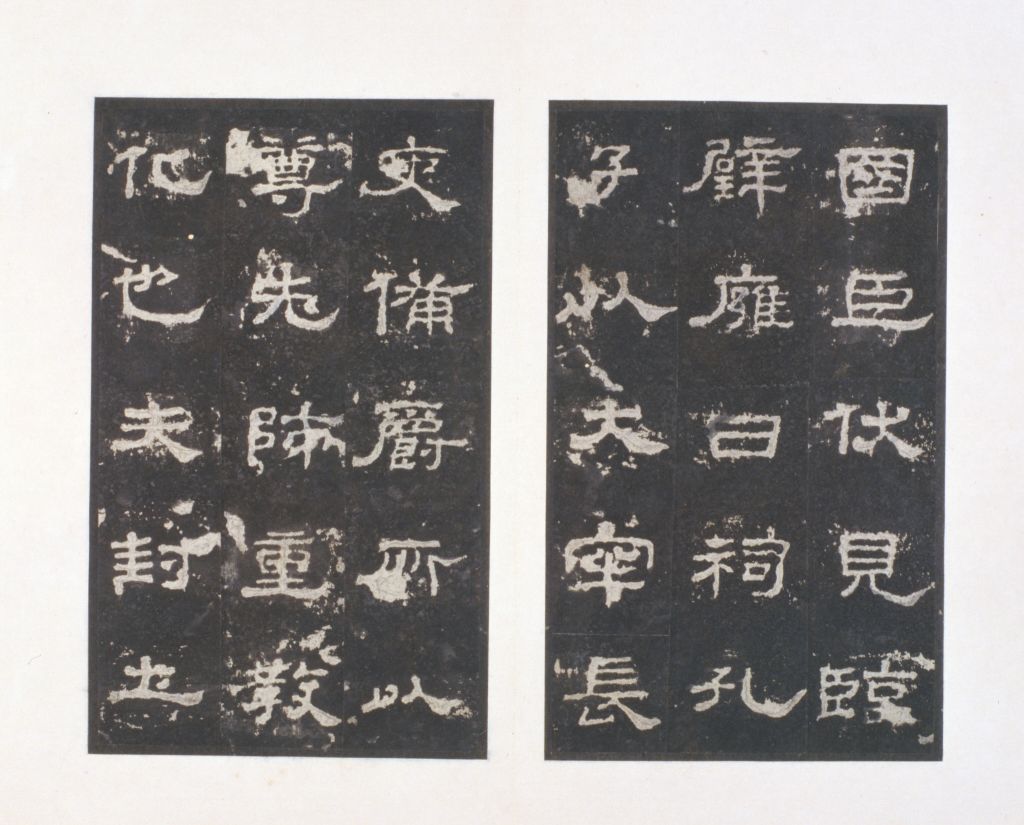 國臣伏見臨
辟廱日祠孔
子以大牢長
吏備爵所以
尊先師重教
化也夫封土